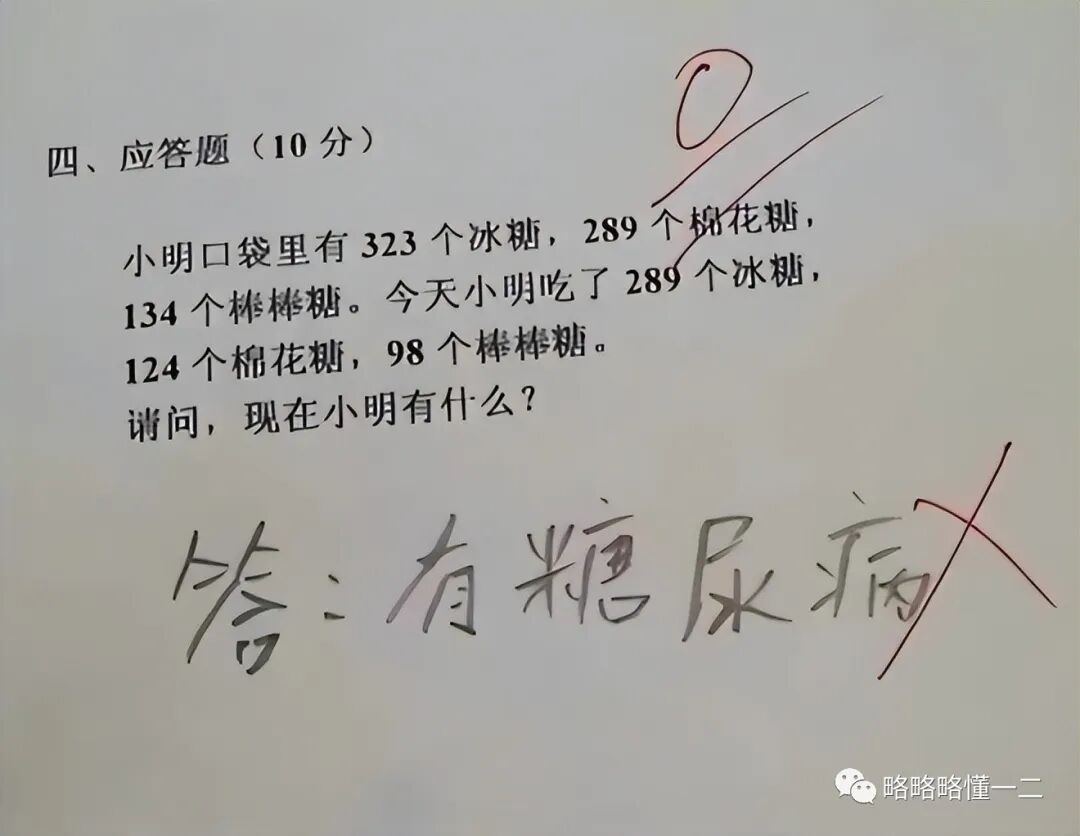 0
四、应答题（10 分）
小明口袋里有 323 个冰糖，289 个棉花糖，
134 个棒棒糖。今天小明吃了 289 个冰糖，
124 个棉花糖，98 个棒棒糖。
请问，现在小明有什么？
答：有糖尿病
略略略懂一二